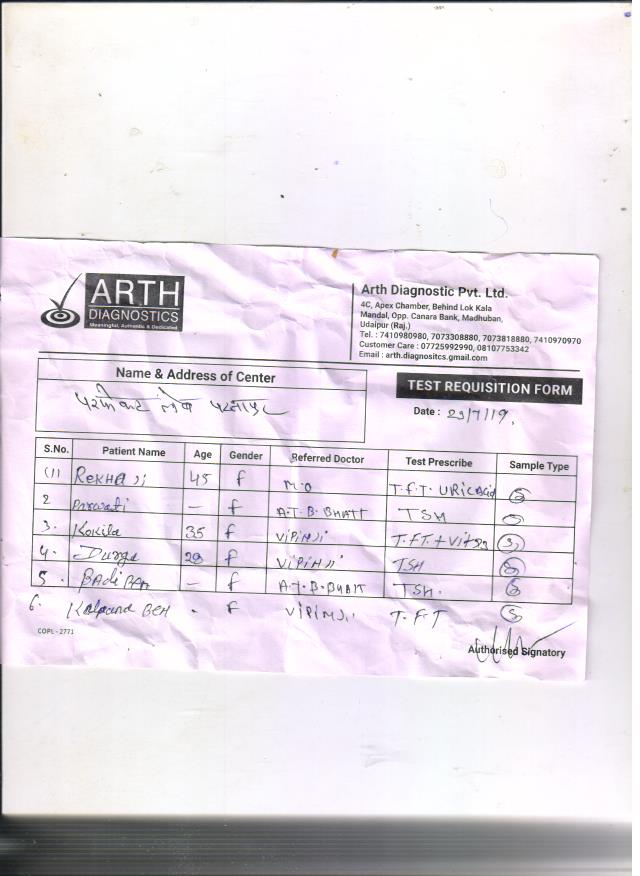 ARTH
DIAGNOSTICS
Meaningful, Authentic & Dedicated
Arth Diagnostic Pvt. Ltd.
4C, Apex Chamber, Behind Lok Kala
Mandal, Opp. Canara Bank, Madhuban,
Udaipur (Raj.)
Tel. : 7410980980, 7073308880, 7073818880, 7410970970
Customer Care : 07725992990, 08107753342
Email : arth.diagnositcs.gmail.com
Name & Address of Center
TEST REQUISITION FORM
Date : 29/7/19
S.No. Patient Name Age Gender Referred Doctor Test Prescribe Sample Type
(1) REKHA JI 45 f M.O T.F.T. URIC Acid
2 Parwati — f A.T.B. BHATT TSH
3. Kokila 35 f ViPiNJi T.F.T. + Vit
4. Durga 29 f ViPiNJi TSH
5. BAdi BAI — f A.T.B. BHATT TSH. 
6. Kalpana BEN - f ViPiNJi T.F.T
COPL - 2771
Authorised Signatory